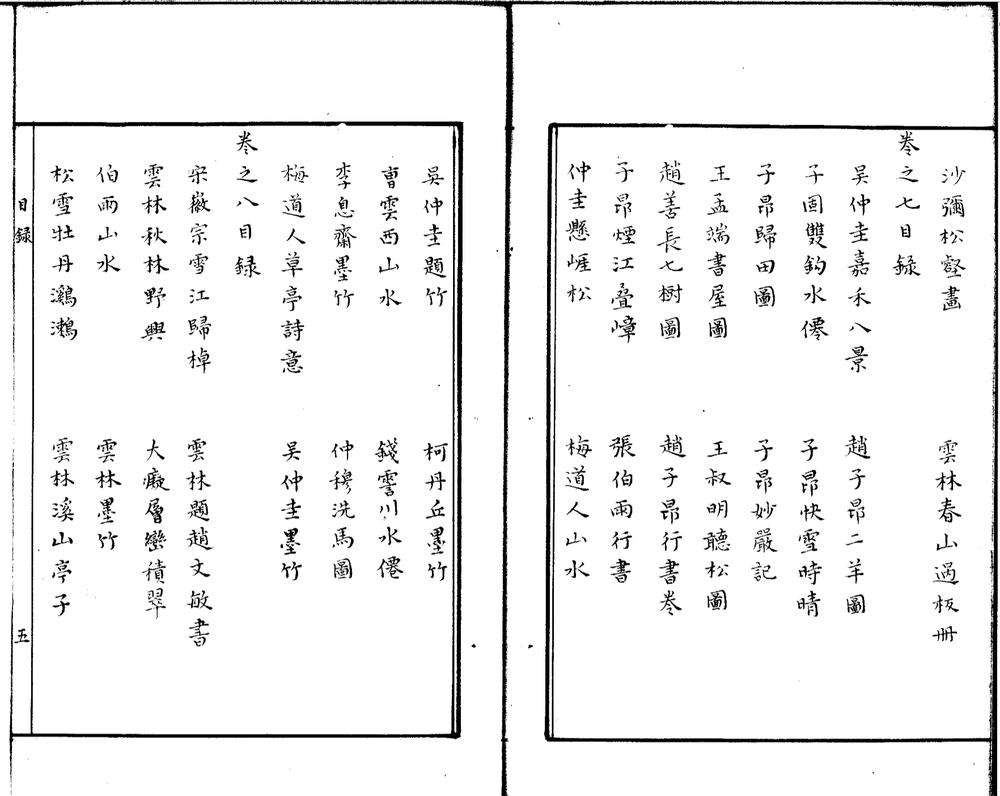 沙彌松壑畫　雲林春山過板冊
卷之七目録
吴仲圭嘉禾八景　趙子昂二羊圖
子固雙鈎水僊　子昂快雪時晴
子昂歸田圖　子昂妙嚴記
王孟端書屋圖　王叔明聽松圖
趙善長七樹圖　趙子昂行書卷
子昂煙江叠嶂　張伯雨行書
仲圭懸崕松　梅道人山水
吳仲圭題竹　柯丹丘墨竹
曹雲西山水　錢霅川水僊
李息齋墨竹　仲穆洗馬圖
梅道人草亭詩意　吴仲圭墨竹
卷之八目録
宋徽宗雪江歸棹　雲林題趙文敏書
雲林秋林野興　大癡層巒積翠
伯雨山水　雲林墨竹
松雪牡丹鸂鶒　雲林溪山亭子
目録　五